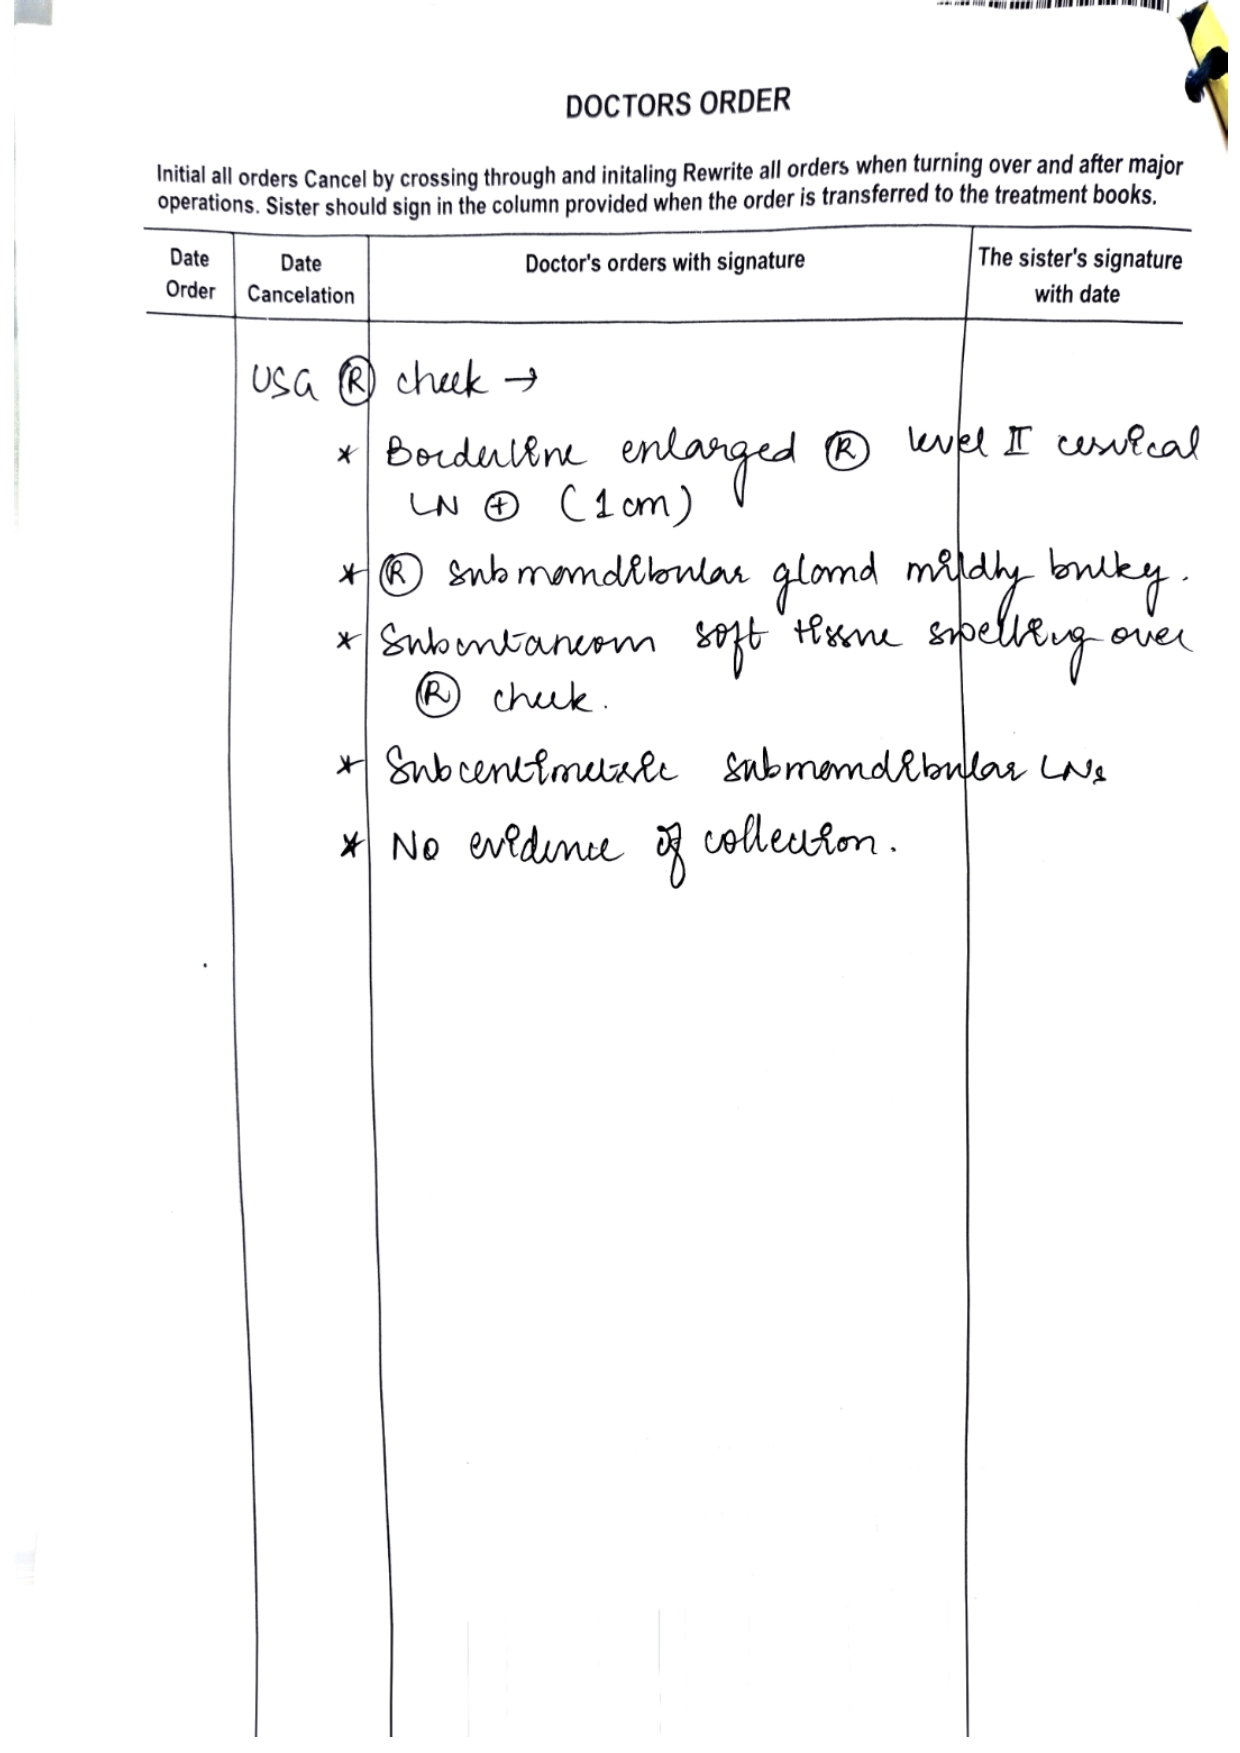 DOCTORS ORDER
Initial all orders Cancel by crossing through and initaling Rewrite all orders when turning over and after major
operations. Sister should sign in the column provided when the order is transferred to the treatment books.
Date Order
Date Cancelation
Doctor's orders with signature
The sister's signature with date
USG Ⓡ cheek →
* Borderline enlarged Ⓡ level II cervical
LN ⊕ (1 cm)
* Ⓡ submandibular gland mildly bulky.
* Subcutaneous soft tissue swelling over
Ⓡ cheek.
* Subcentimetric submandibular LNs
* No evidence of collection.